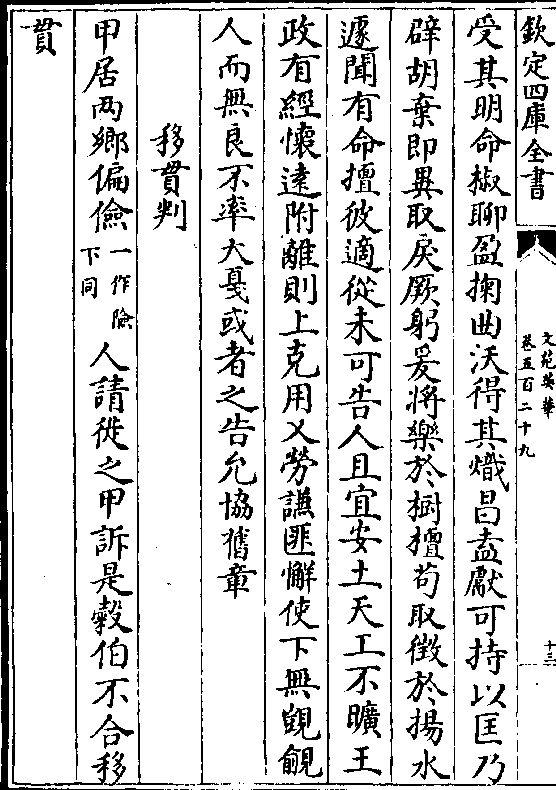 欽定四庫全書
文苑英華
卷五百二十九
十三
受其明命椒聊盈掬曲沃得其熾昌盍獻可持以匡乃
辟胡棄即異取戾厥躬爰將樂於樹檀苟取徵於揚水
遽聞有命擅彼適從未可告人且宜安土天工不曠王
政有經懷遠附離則上克用乂勞謙匪懈使下無覬覦
人而無良不率大戛或者之告允協舊章
移貫判
甲居兩鄉偏儉一作險下同人請徙之甲訴是穀伯不合移
貫